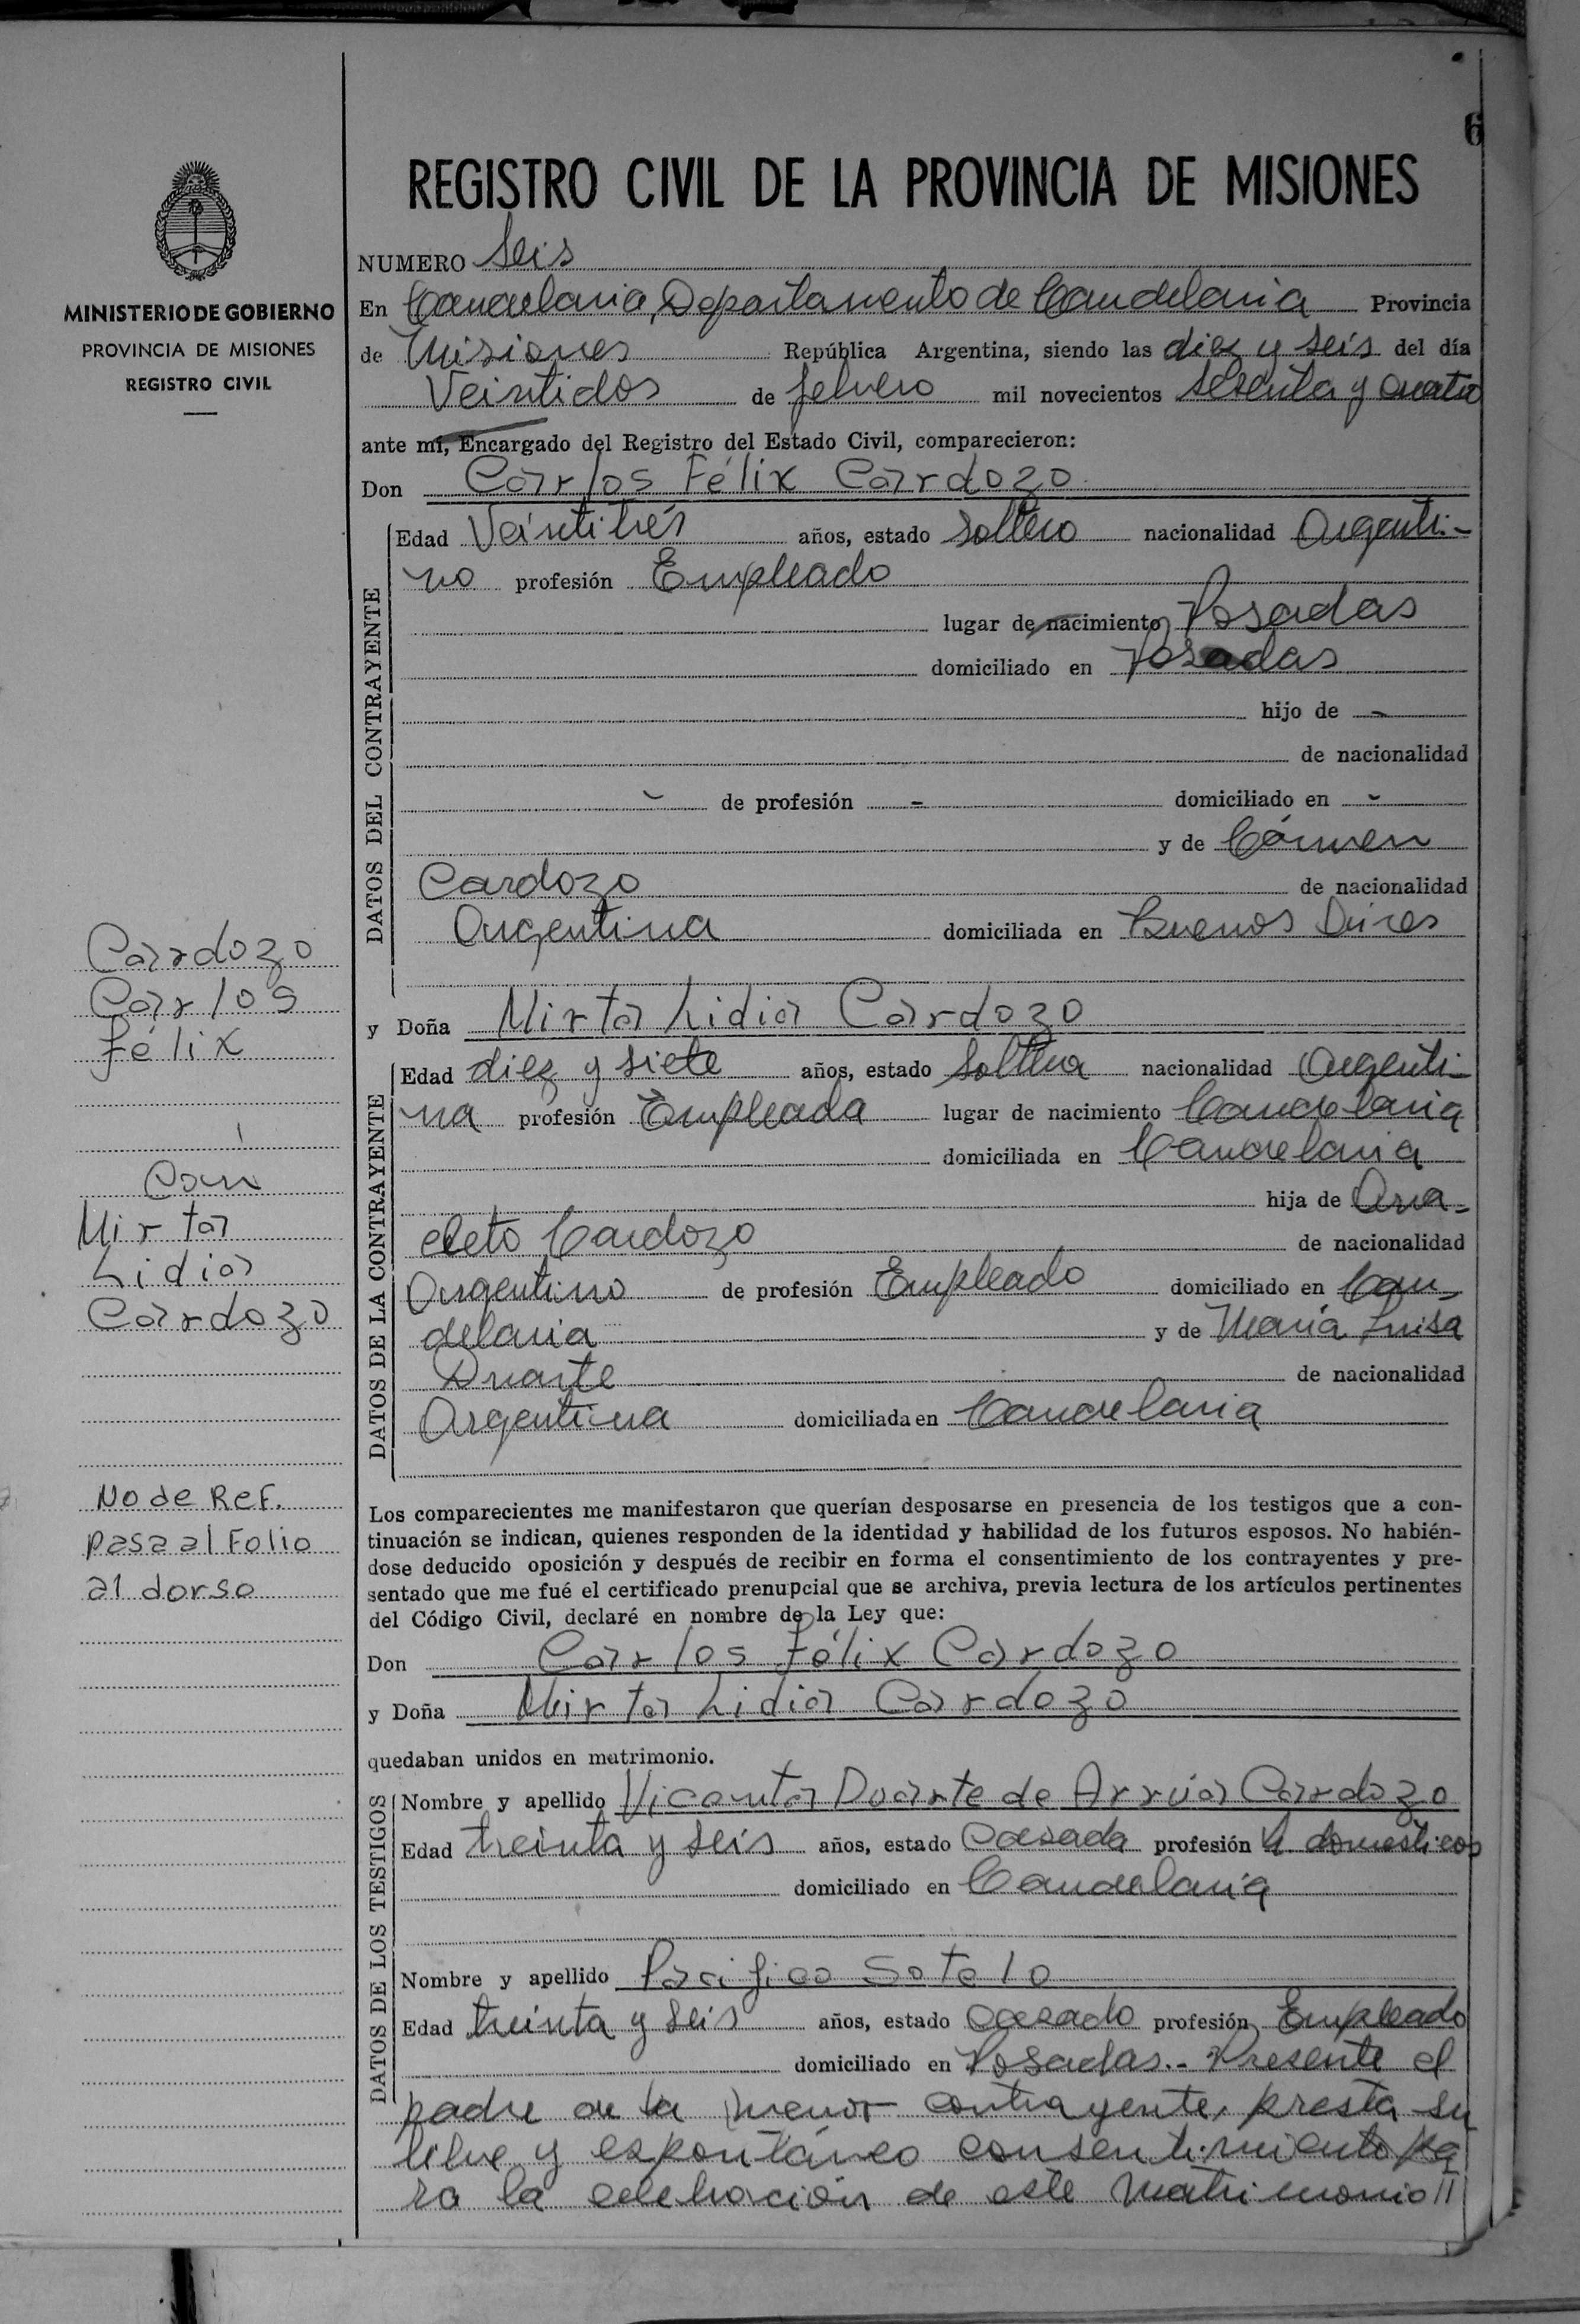 6
REGISTRO CIVIL DE LA PROVINCIA DE MISIONES
MINISTERIO DE GOBIERNO
PROVINCIA DE MISIONES
REGISTRO CIVIL
NUMERO Seis
En Candelaria, Departamento de Candelaria Provincia
de Misiones República Argentina, siendo las diez y seis del día
Veintidos de febrero mil novecientos sesenta y cuatro
ante mí, Encargado del Registro del Estado Civil, comparecieron:
Don Carlos Félix Cardozo
DATOS DEL CONTRAYENTE
Edad Veintitrés años, estado soltero nacionalidad Argenti-
no profesión Empleado
lugar de nacimiento Posadas
domiciliado en Posadas
hijo de -
de nacionalidad
- de profesión - domiciliado en -
y de Cármen
Cardozo de nacionalidad
Argentina domiciliada en Buenos Aires
y Doña Mirta Lidia Cardozo
DATOS DE LA CONTRAYENTE
Edad diez y siete años, estado soltera nacionalidad Argenti-
na profesión Empleada lugar de nacimiento Candelaria
domiciliada en Candelaria
hija de Ana-
cleto Cardozo de nacionalidad
Argentino de profesión Empleado domiciliado en Can-
delaria y de María Luisa
Duarte de nacionalidad
Argentina domiciliada en Candelaria
Cardozo
Carlos
Félix
Con
Mirta
Lidia
Cardozo
No de Ref.
pasa al Folio
al dorso
Los comparecientes me manifestaron que querían desposarse en presencia de los testigos que a con-
tinuación se indican, quienes responden de la identidad y habilidad de los futuros esposos. No habién-
dose deducido oposición y después de recibir en forma el consentimiento de los contrayentes y pre-
sentado que me fué el certificado prenupcial que se archiva, previa lectura de los artículos pertinentes
del Código Civil, declaré en nombre de la Ley que:
Don Carlos Félix Cardozo
y Doña Mirta Lidia Cardozo
quedaban unidos en matrimonio.
DATOS DE LOS TESTIGOS
Nombre y apellido Vicenta Duarte de Arrúa Cardozo
Edad treinta y seis años, estado Casada profesión domesticos
domiciliado en Candelaria
Nombre y apellido Pacifico Sotelo
Edad treinta y seis años, estado Casado profesión Empleado
domiciliado en Posadas.- Presente el
padre de la menor contrayente, presta su
libre y espontáneo consentimiento pa
ra la celebración de este matrimonio //